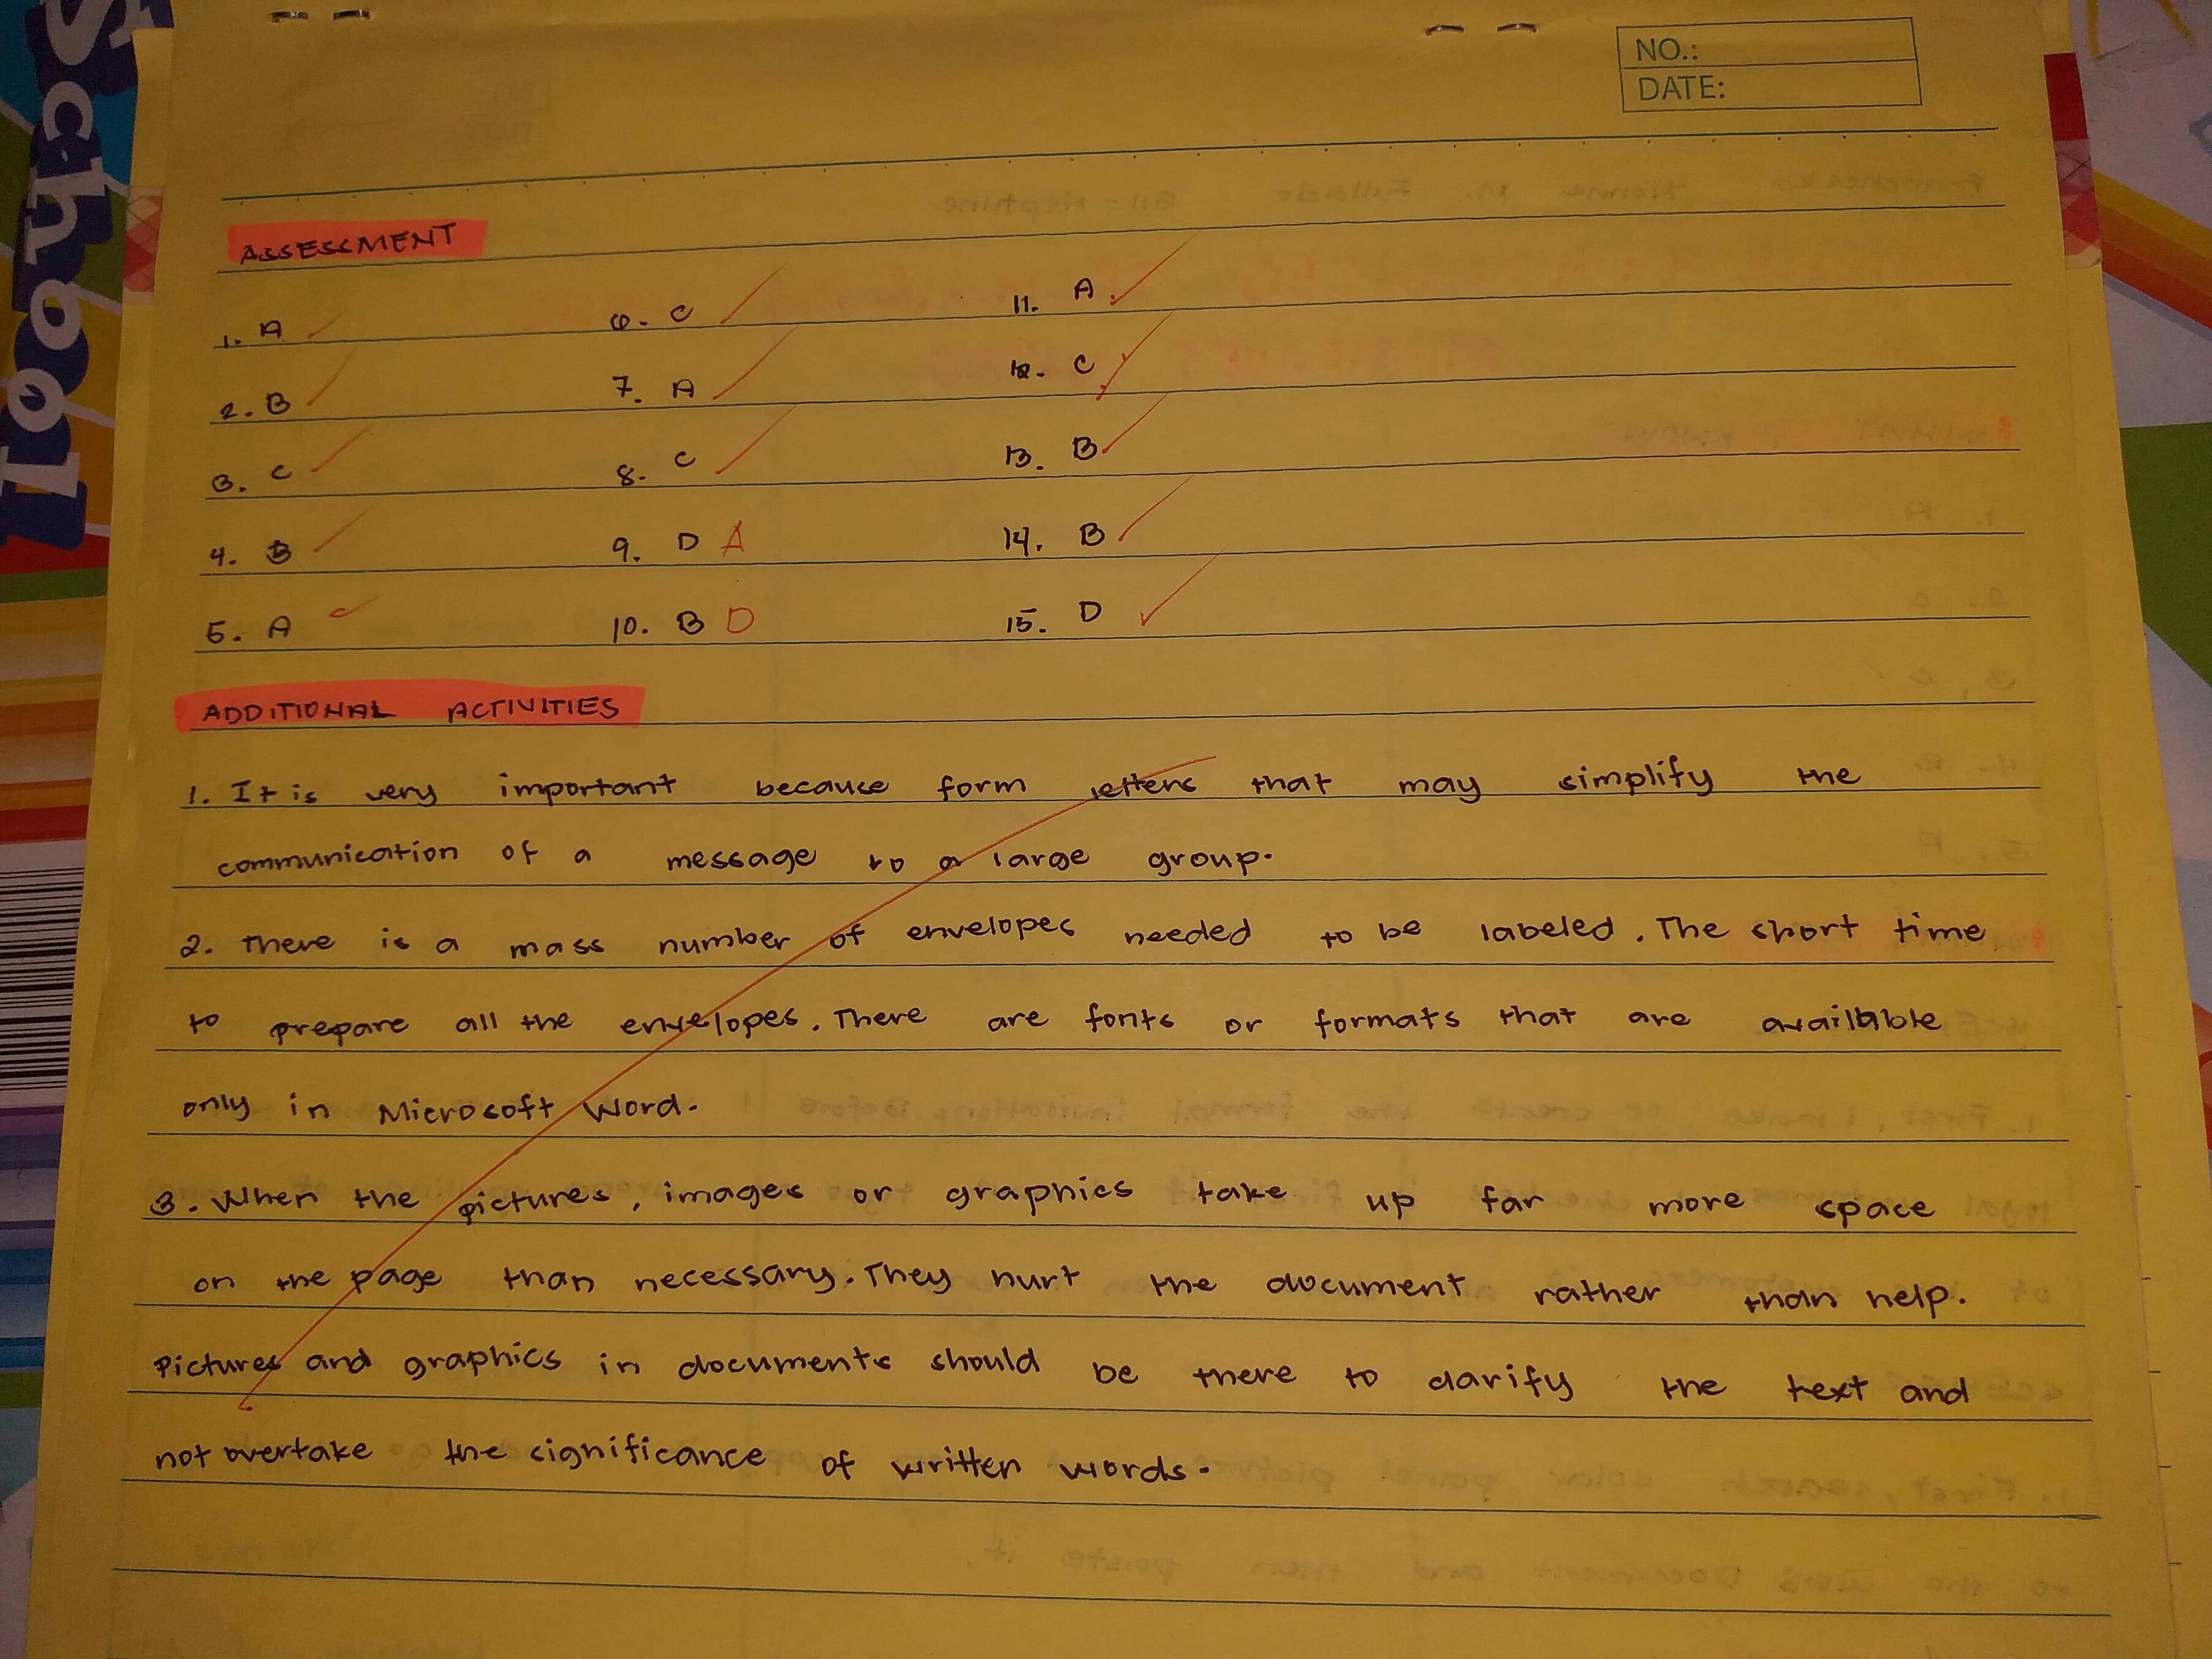 School
NO.:
DATE:
ASSESSMENT
1. A
2. B
3. C
4. B
5. A C
6. C
7. A
8. C
9. D A
10. B D
11. A
12. C
13. B
14. B
15. D
ADDITIONAL ACTIVITIES
1. It is very important because form letters that may simplify the
communication of a message to a large group.
2. There is a mass number of envelopes needed to be labeled. The short time
to prepare all the envelopes. There are fonts or formats that are available
only in Microsoft Word.
3. When the pictures, images or graphics take up far more space
on the page than necessary. They hurt the document rather than help.
Pictures and graphics in documents should be there to clarify the text and
not overtake the significance of written words.